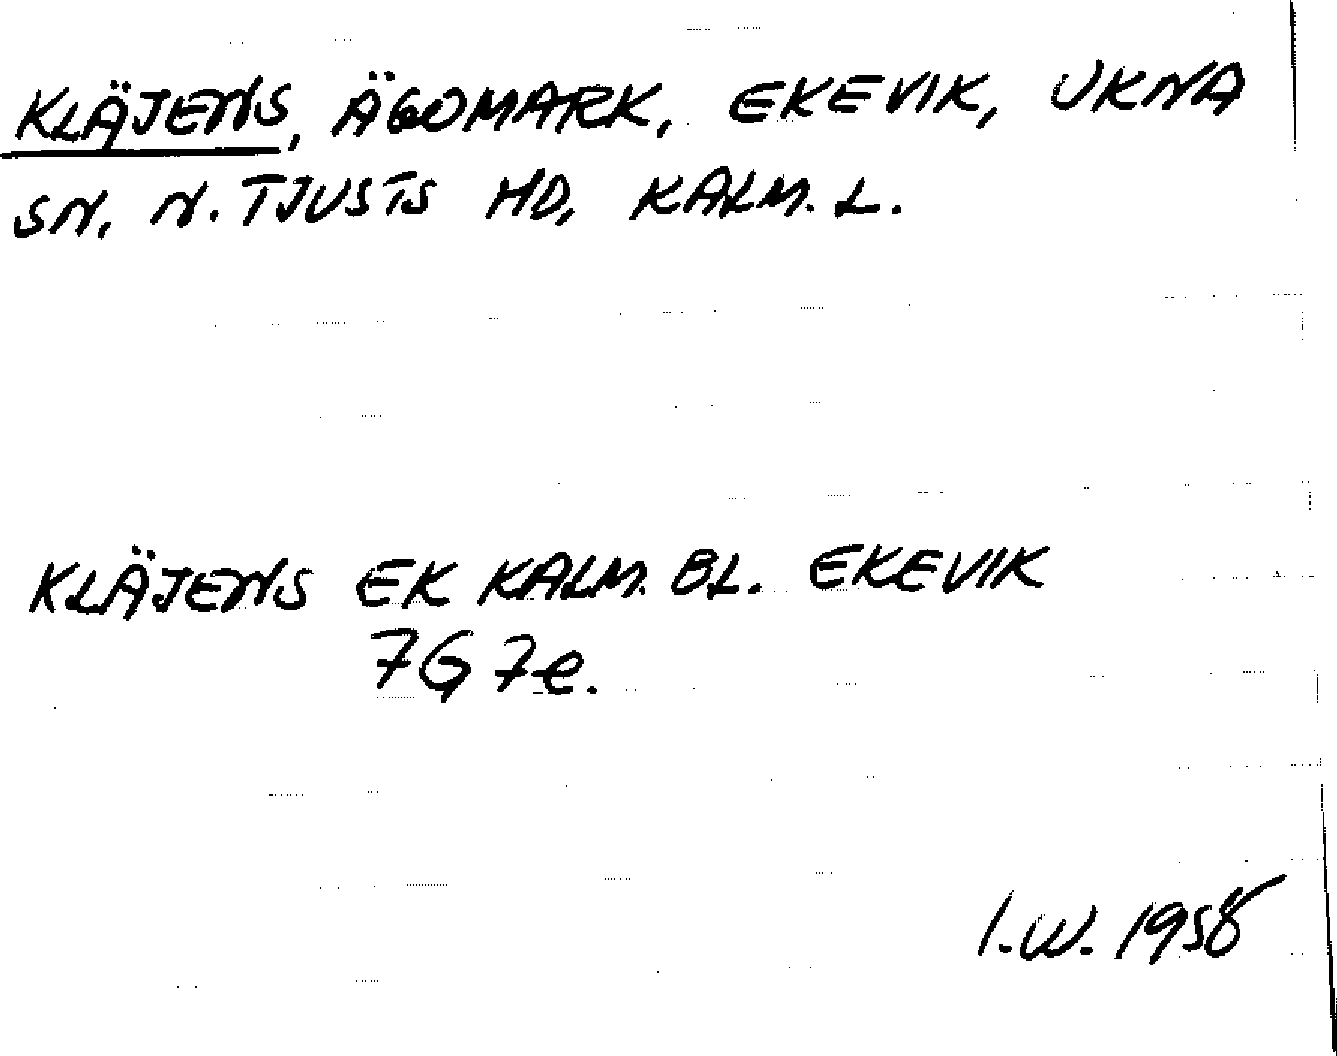 KLÄJENS, ÄGOMARK, EKEVIK, UKNA
SN, N. TJUSTS HD, KALM. L.
KLÄJENS EK KALM. BL. EKEVIK
7G 7e.
I.W. 1958